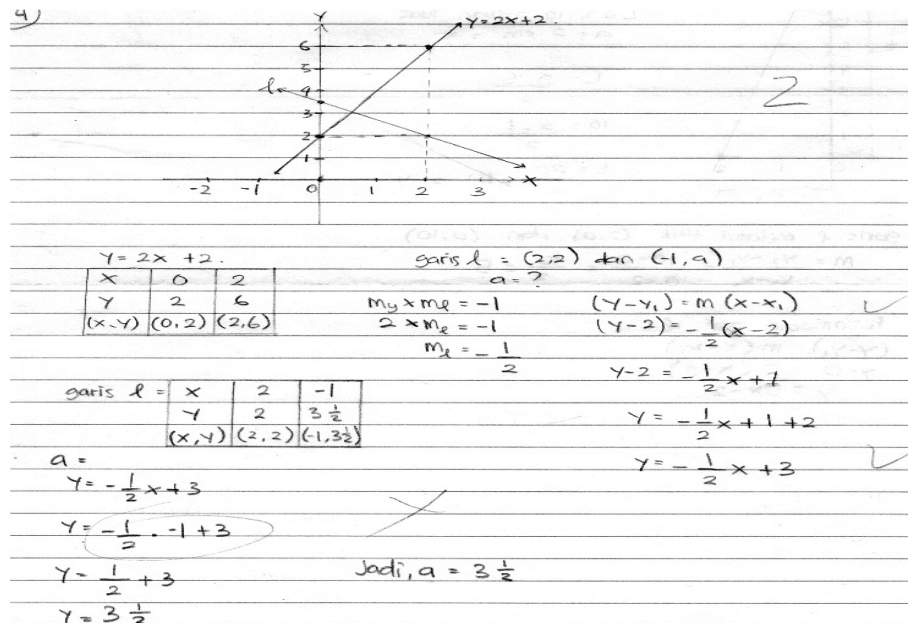 4)
Y
Y=2X+2.
6
5
4
l
3
2
1
-2 -1 0 1 2 3 X
2
Y=2X+2.
X 0 2
Y 2 6
(X,Y) (0,2) (2,6)
garis l = (2,2) dan (-1,a)
a = ?
my × ml = -1
2 × ml = -1
ml = -1/2
(Y-Y₁) = m (X-X₁)
(Y-2) = -1/2 (X-2)
Y-2 = -1/2 X+1
Y = -1/2 X+1+2
Y = -1/2 X+3
garis l =
X 2 -1
Y 2 3 1/2
(X,Y) (2,2) (-1,3 1/2)
a =
Y = -1/2 X+3
Y = -1/2 . -1+3
Y = 1/2 + 3
Y = 3 1/2
Jadi, a = 3 1/2